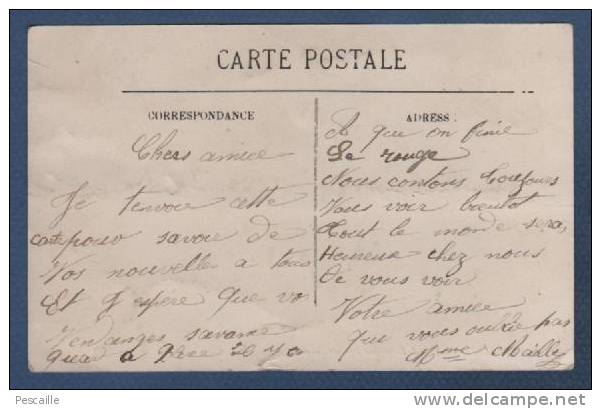 CARTE POSTALE
CORRESPONDANCE
Chers amiee
Je tenvoie cette
carte pour savoir de
Vos nouvelle a tous
Et J espère que vo
Vendanges savance
a
ADRESSE
A qui on finie
Le rouge
Nous contons toujours
Vous voir bientot
tout le monde sera
Heureuse chez nous
De vous voir
Votre amiee
qui vous oublie pas
Mme Mailly
Pescaille
http://pescaille.delcampe.net